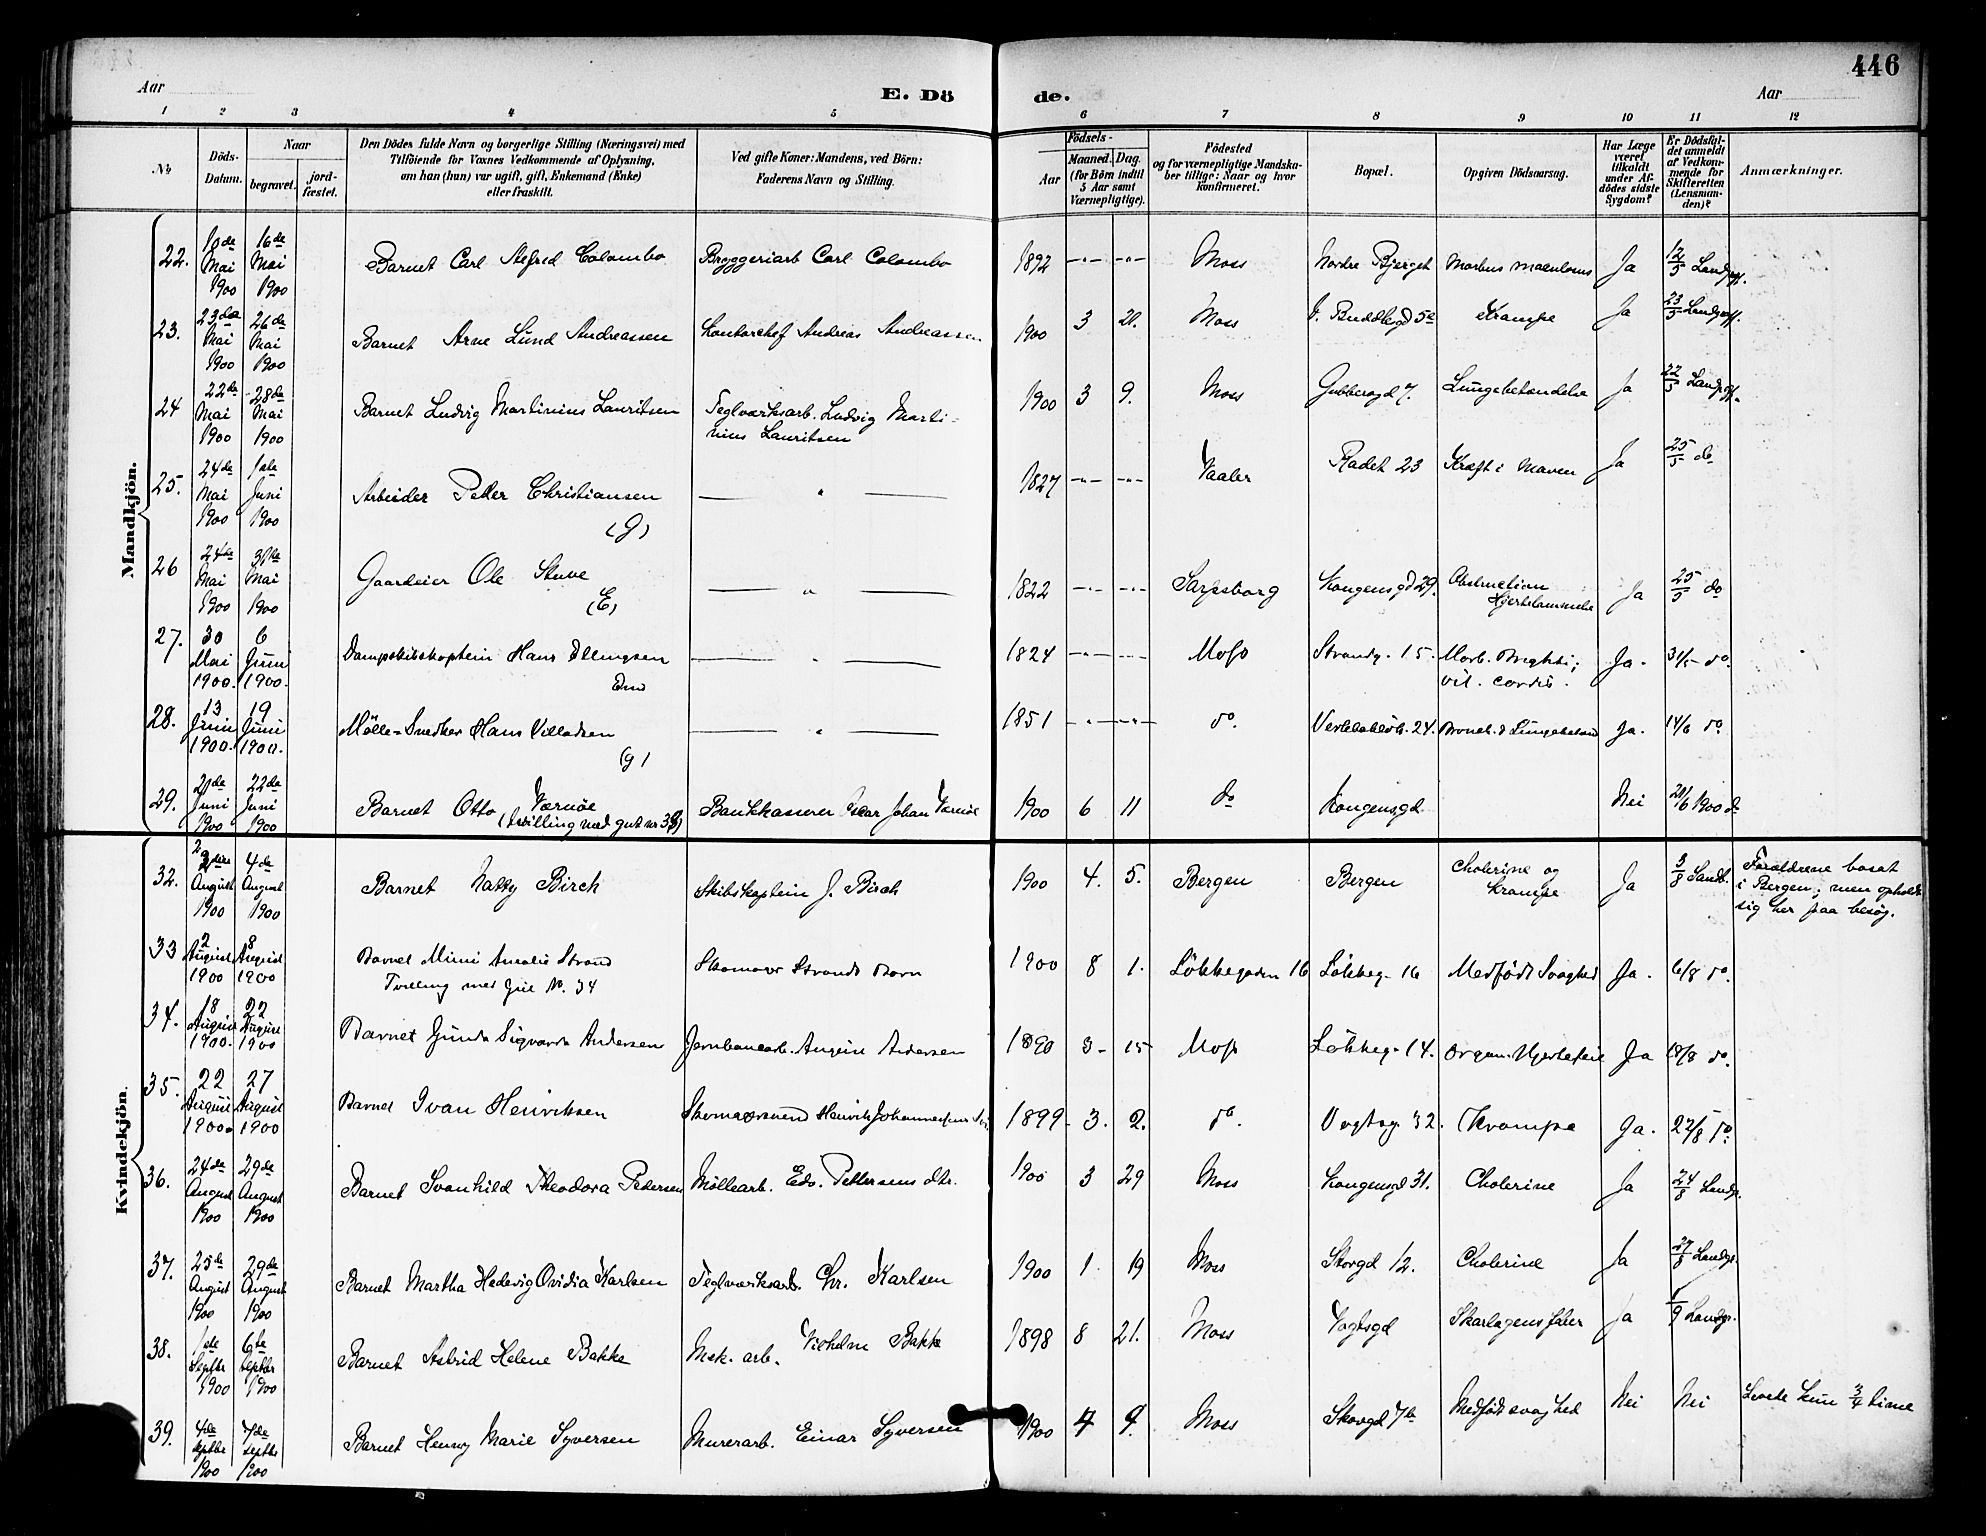 446
Aar
E. Dö
de.
Aar
1 2 3 4 5 6 7 8 9 10 11 12
Nr.
Döds-
Datum.
Naar
begravet.
jord-
fæstet.
Den Dödes fulde Navn og borgerlige Stilling (Næringsvei) med
Tilföiende for Voxnes Vedkommende af Oplysning,
om han (hun) var ugift, gift, Enkemand (Enke)
eller fraskilt.
Ved gifte Koner: Mandens, ved Börn:
Faderens Navn og Stilling.
Födsels-
Aar
Maaned. Dag.
(for Börn indtil
5 Aar samt
Værnepligtige).
Födested
og for værnepligtige Mandska-
ber tillige: Naar og hvor
Konfirmeret.
Bopæl.
Opgiven Dödsaarsag.
Har Læge
været
tilkaldt
under Af-
dödes sidste
Sygdom?
Er Dödsfal-
det anmeldt
af Vedkom-
mende for
Skifteretten
(Lensman-
den)?
Anmærkninger.
Mandkjön.
22. 10de Mai 1900 16de Mai 1900 Barnet Carl Alfred Colombo Bryggeriarb Carl Colombo 1892 Moss Nordre Bjerget Morbus maculosus Ja 12/5
23. 23de Mai 1900 26de Mai 1900 Barnet Arne Lund Andreassen Kontorchef Andreas Andreassen 1900 3 21. Moss Krampe Ja 23/5
24 22de Mai 1900 28de Mai 1900 Barnet Ludvig Martinius Lauritsen Teglværksarb. Ludvig Marti-
nius Lauritsen 1900 3 9. Moss Gubbegd 7. Lungebetændelse Ja 22/5
25. 24de Mai 1900 1ste Juni 1900 Arbeider Peder Christiansen
(G) 1827 Vaaler Radet 23 Kræft i Maven Ja 25/5 do
26 24de Mai 1900 31te Mai 1900 Gaardeier Ole Stube
(E) 1822 Sarpsborg Kongensgd 29. Obstruction
Hjertelammelse Ja 25/5 do
27. 30 Mai 1900. 6 Juni 1900. Dampskibskaptein Hans Ellingsen
Em 1824 Moss Strandg. 15. Morb. Brightii;
vit. cordis. Ja. 31/5 do.
28. 13 Juni 1900. 19 Juni 1900. Mölle-Snedker Hans Villadsen
(g) 1851 do. Bronch. & Lungebetænd Ja. 14/6 do.
29. 21de Juni 1900 22de Juni 1900 Barnet Otto Værnöe
(tvilling med gut nr 39) Bankkasserer Johan Værnöe 1900 6 11 do Kongensgd. Nei 21/6 1900 do
Kvindekjön.
32. August 1900 4de August 1900 Barnet Natty Birch Skibskaptein J. Birch 1900 4. 5. Bergen Bergen Cholerine og
Krampe Ja 3/8 Forældrene bosat
i Bergen; men opholdt
sig her paa besög.
33 2 August 1900 8 August 1900 Barnet Mimi Amalie Strand
Tvilling med Gut No. 34 Skomager Strands Barn 1900 8 1. Lökkegaden 16 Lökkeg. 16 Medfödt Svaghed Ja. 6/8 do.
34. 18 August 1900. 22 August 1900 Barnet Gunda Sigvarda Andersen Jernbanearb. August Andersen 1890 3 15 Moss Lökkeg. 14. Organ. Hjertefeil Ja 18/8 do.
35. 22 August 1900. 27 August 1900 Barnet Ivan Henriksen Skomagersvend Henrik 1899. 3. 2. do. Vogtsg. 32. Krampe Ja. 22/8 do.
36. 24de August 1900 29de August 1900 Barnet Svanhild Theodora Pedersen Möllearb. Edv. Pettersens dtr. 1900 3 29 Moss Kongensgd 31. Cholerine Ja 24/8
37. 25de August 1900 29de August 1900 Barnet Martha Hedevig Ovidia Karlsen Teglværksarb. Chr. Karlsen 1900 1 19 Moss Storgd 12. Cholerine Ja 27/8
38. 1ste Septbr 1900 6te Septbr 1900 Barnet Astrid Helene Bakke Mek. arb. Vilhelm Bakke 1898 8 21. Moss Vogtsgd Skarlagensfeber Ja
39. 4de Septbr 1900 7de Septbr 1900 Barnet Henny Marie Syversen Murerarb. Einar Syversen 1900 Moss Medfödt svaghed Nei Nei Levede kun 3/4 time